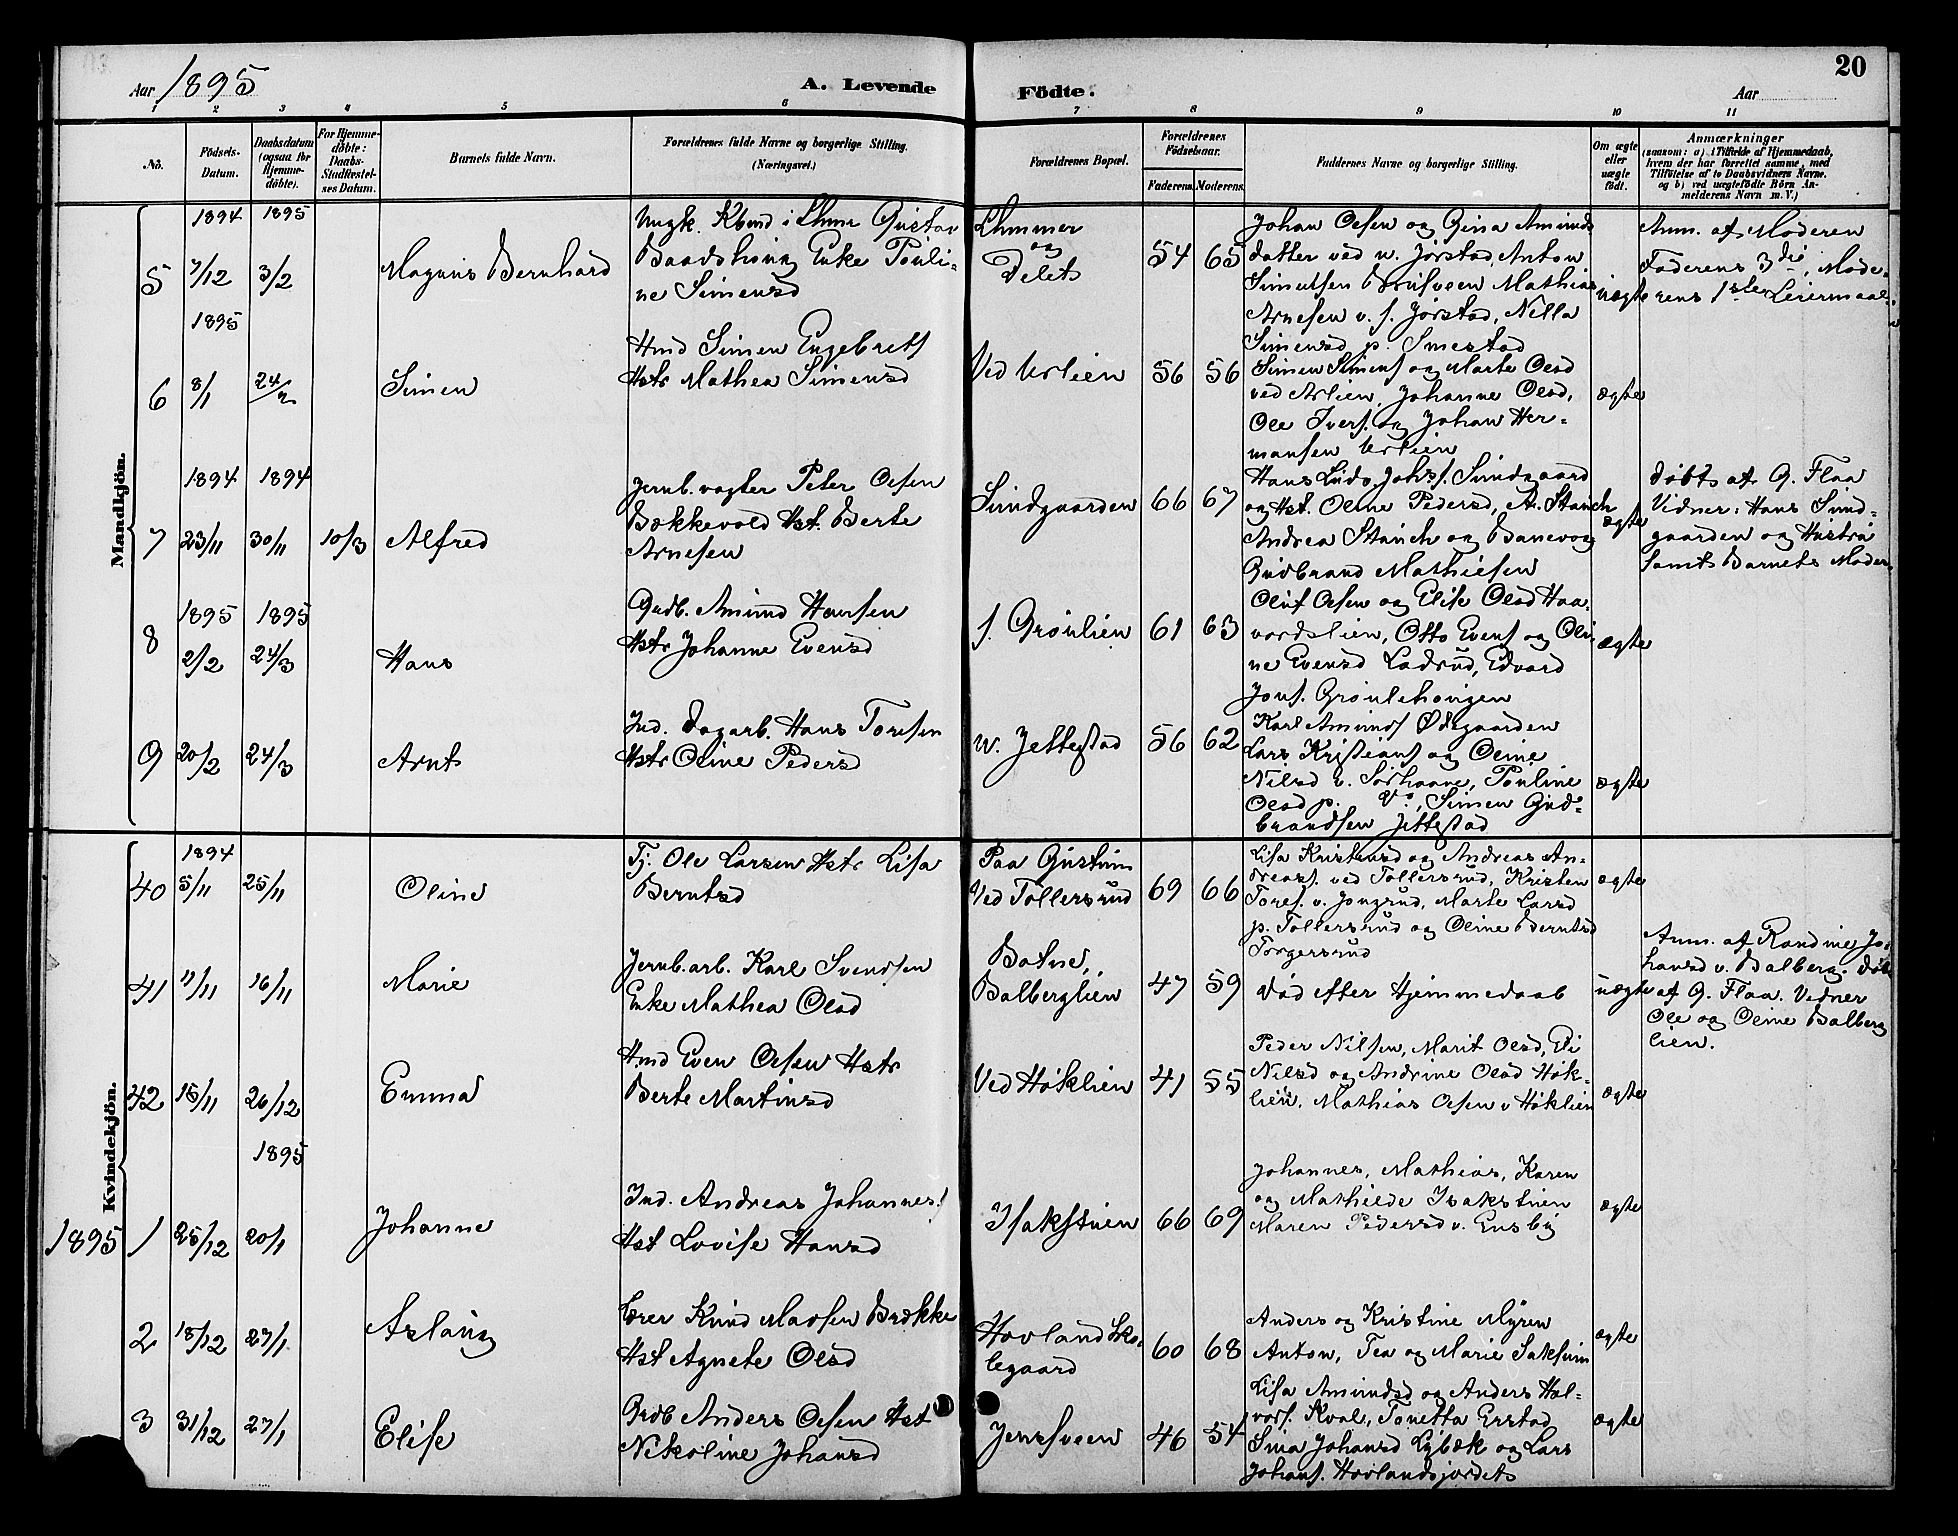 Aar 1895
A. Levende
Födte.
Aar
20
1 2 3 4 5 6 7 8 9 10 11
No.
Födsels-
Datum.
Daabsdatum
(ogsaa for
Hjemme-
döbte).
For Hjemme-
döbte:
Daabs-
Stadfæstel-
ses Datum.
Barnets fulde Navn.
Forældrenes fulde Navne og borgerlige Stilling.
(Næringsvei.)
Forældrenes Bopæl.
Forældrenes
Födselsaar.
Faderens. Moderens.
Faddernes Navne og borgerlige Stilling.
Om ægte
eller
uægte
født.
Anmærkninger
(saasom: a) i Tilfælde af Hjemmedaab,
hvem der har forrettet samme, med
Tilföielse af to Daabsvidners Navne.
og b) ved uægtefödte Börn An-
melderens Navn m. V.)
Mandkjön.
1894 1895
5 7/12 3/2
Magnus Bernhard
Ungk. Kbmd i Gustav
Enke Pauli-
ne Simensd
og
Delet
54 65
Johan Olsen og Gina Amunds
datter ved n. Jörstad, Anton
Mathias
Arnesen v. s. Jörstad, Nella
Simensd p. Smestad
uægte
Anm. af Moderen
Faderens 3die, Mode-
rens 1ste Leiermaal
1895
6 8/1 24/2
Simen
Hmd Simen Engebrets
Hstr Mathea Simensd
Ved
56 56
Simen Simens og Marte Olsd
ved Johanne Olsd,
Ole Ivers. og Johan Her-
mansen
ægte
1894 1894
7 23/11 30/11 10/3
Alfred
Jernb.vogter Peter Olsen
Bækkevold Hst. Berte
Arnesen
Sundgaarden
66 67
Hans Sundgaard
og Hst. Oline Pedersd, A. Stauch
Andrea Stauch og Banevog
Gudbrand Mathiesen
ægte
Døbt af G. Flaa
Vidner: Hans Sund-
gaarden og Hustru
samt Barnets Moder
1895 1895
8 2/2 24/3
Hans
Gudb. Amund Hansen
Hstr Johanne Evensd
s. Grønlien
61 63
Oluf Olsen og Elise Olsd Haa-
vordslien, Otto Evens og Oli
ne Evensd Ladsrud, Edvard
Jons. Grønlehougen
ægte
9 20/2 24/3
Arnt
Ind. Dagarb. Hans Toresen
Hstr Oline Pedersd
n. Jettestad
56 62
Karl Amunds Ødegaarden
Lars Kristians og Oline
Nilsd v. Sørhaave, Pauline
Olsd p. Simen Gud-
brandsen Jettestad
ægte
Kvindekjön.
1894
40 5/11 25/11
Oline
Tj. Ole Larsen Hstr Lisa
Berntsd
Paa Gustum
Ved Tollersrud
69 66
Lisa Kristensd og Andreas An-
dreass. ved Tollersrud, Kristen
Tores. v. Jongsrud, Marte Larsd
p. Tollersrud og Oline Berntsd
Torgersrud
ægte
41 11/11 16/11
Marie
Jernb.arb. Karl Svendsen
Enke Mathea Olsd
Botne,
Balberglien
47 59
Død efter Hjemmedaab
uægte
Anm. af Randine Jo-
hansd v. Balberg. Døbt
af G. Flaa. Vidner
Ole og Oline Balberg
lien.
42 15/11 26/12
Emma
Hmd Even Olsen Hstr
Berte Martinsd
Ved Høklien
41 55
Peder Nilsen, Marit Olsd, Eli
Nilsd og Andrine Olsd Høk-
lien. Mathias Olsen v Høklien
ægte
1895
1895 1 25/12 20/1
Johanne
Ind. Andreas Johannes.
Hst Lovise Hansd
Isakstuen
66 69
Johannes, Mathias, Karen
og Mathilde Isakstuen
Maren Pedersd v. Ensby
ægte
2 18/12 27/1
Aslaug
Lærer Knud Madsen Brække
Hst Agnete Olsd
Hovland Sko-
legaard
60 68
Anders og Kristine Myren
Anton, Tea og Marie Saksum
ægte
3 31/12 27/1
Elise
Grdb Anders Olsen Hst
Nikoline Johansd
Jensveen
46 54
Lisa Amundsd og Anders Hal-
vors. Kval, Tonetta Erstad
Sina Johansd Lybæk og Lars
Johans. Hovlandsjordet
ægte